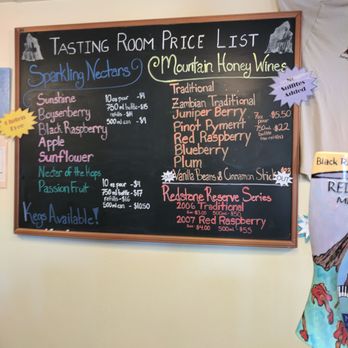 TASTING ROOM PRICE LIST
Sparkling Nectars
Sunshine
Boysenberry
Black Raspberry
Apple
Sunflower
Nectar of the Hops
Passion Fruit
10 oz pour - $4
750ml bottle - $15
500ml can - $9
10 oz pour - $4
750ml bottle - $17
refills - $16
500ml can - $10.50
Kegs Available!
Gluten Free
Mountain Honey Wines
No Sulfites Added
Traditional
Zambian Traditional
Juniper Berry
Pinot Pyment
Red Raspberry
Blueberry
Plum
Vanilla Beans & Cinnamon Sticks
7oz pour $5.50
750ml bottle $22
Redstone Reserve Series
2006 Traditional
500ml - $50
2007 Red Raspberry
$4.00 500ml - $55
Black
RED